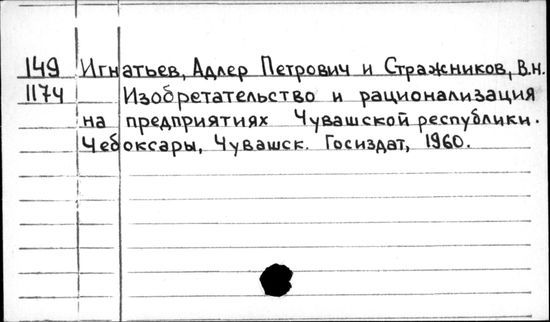 149 Игнатьев, Адлер Петрович и Стражников, В.Н.
1174 Изобретательство и рационализация
на предприятиях Чувашской республики.
Чебоксары, Чувашск. Госиздат, 1960.